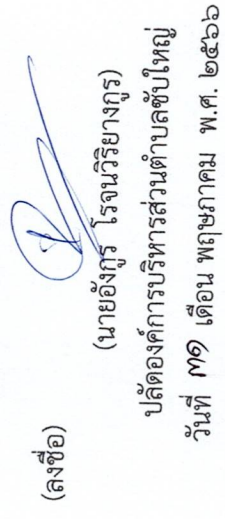 (ลงชื่อ)
(นายอังกูร โรจนวิริยางกูร)
ปลัดองค์การบริหารส่วนตำบลซับใหญ่
วันที่ ๓๑ เดือน พฤษภาคม พ.ศ. ๒๕๖๖